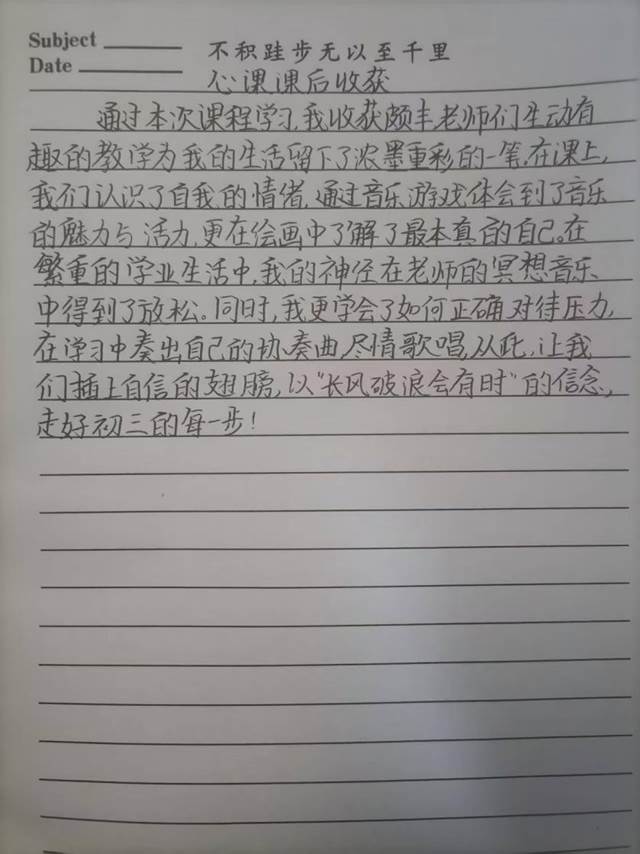 Subject
不积跬步无以至千里
Date
心课课后收获
通过本次课程学习,我收获颇丰,老师们生动有
趣的教学为我的生活留下了浓墨重彩的一笔,在课上,
我们认识了自我的情绪,通过音乐游戏体会到了音乐
的魅力与活力,更在绘画中了解了最本真的自己。在
繁重的学业生活中,我的神经在老师的冥想音乐
中得到了放松。同时,我更学会了如何正确对待压力,
在学习中奏出自己的协奏曲,尽情歌唱,从此,让我
们插上自信的翅膀,以“长风破浪会有时”的信念,
走好初三的每一步!